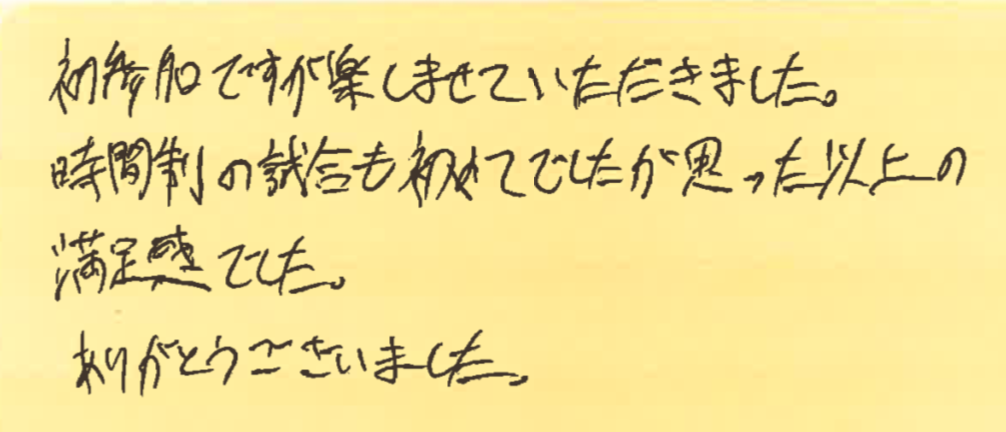 初参加ですが楽しませていただきました。
時間制の試合も初めてでしたが思った以上の
満足感でした。
ありがとうございました。